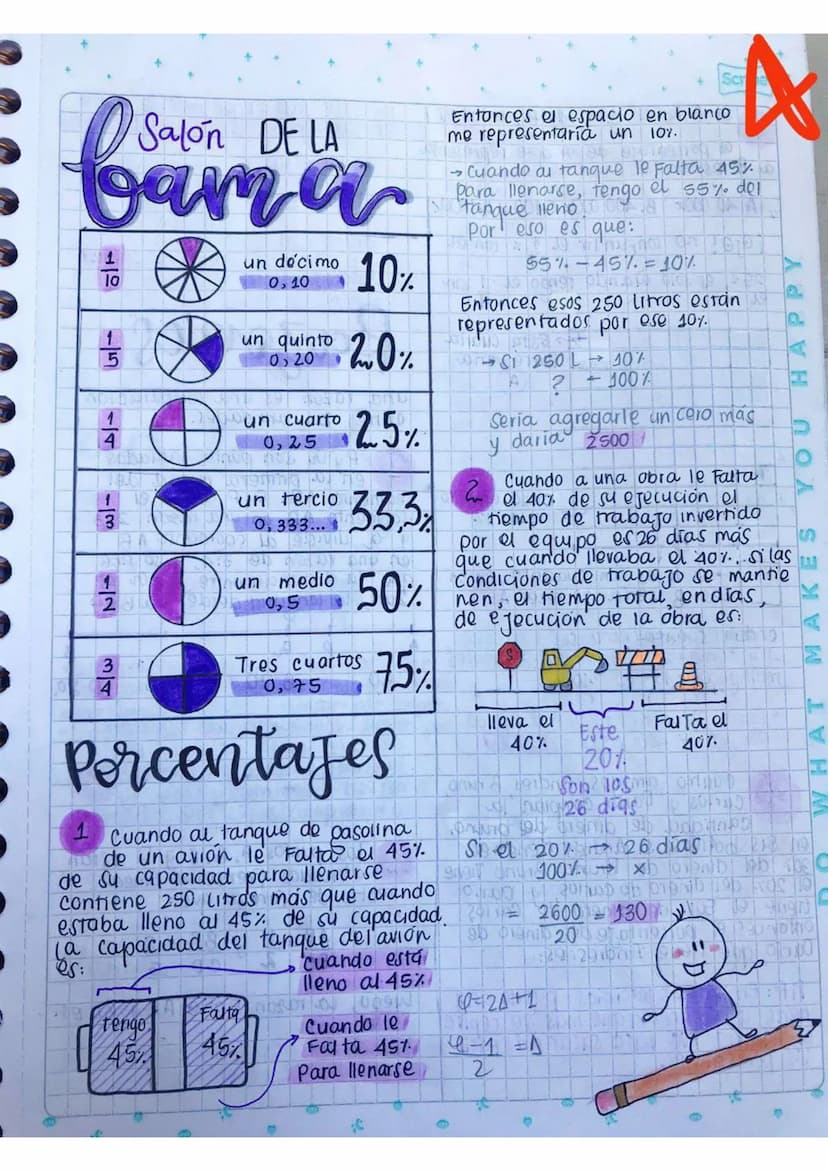 Salón DE LA
fama
1/10 un décimo 0,10 10%
1/5 un quinto 0,20 20%
1/4 un cuarto 0,25 25%
1/3 un tercio 0,333... 33,3%
1/2 un medio 0,5 50%
3/4 Tres cuartos 0,75 75%
Porcentajes
1 Cuando al tanque de gasolina
de un avión le Falta el 45%
de su capacidad para llenarse
contiene 250 litros más que cuando
estaba lleno al 45% de su capacidad.
la capacidad del tanque del avión
es:
Cuando está
lleno al 45%
tengo
45%
Falta
45%
Cuando le
Falta 45%
Para llenarse
4
Entonces el espacio en blanco
me representaría un 10%.
→ Cuando al tanque le Falta 45%
para llenarse, tengo el 55% del
tanque lleno
por eso es que:
55% - 45% = 10%
Entonces esos 250 litros están
representados por ese 10%.
→ Si 250 L → 10%
? ← 100%
Sería agregarle un cero más
y daría 2500
2 Cuando a una obra le Falta
el 40% de su ejecución el
tiempo de trabajo invertido
por el equipo es 26 días más
que cuando llevaba el 40%, si las
condiciones de trabajo se mantie
nen, el tiempo total, en días,
de ejecución de la obra es:
S
lleva el
40%
Este
20%
Son los
26 días
Falta el
40%
Si el 20% → 26 días
100% → x
= 2600 = 130
20
φ=2Δ+1
φ-1 = Δ
2
DO WHAT MAKES YOU HAPPY